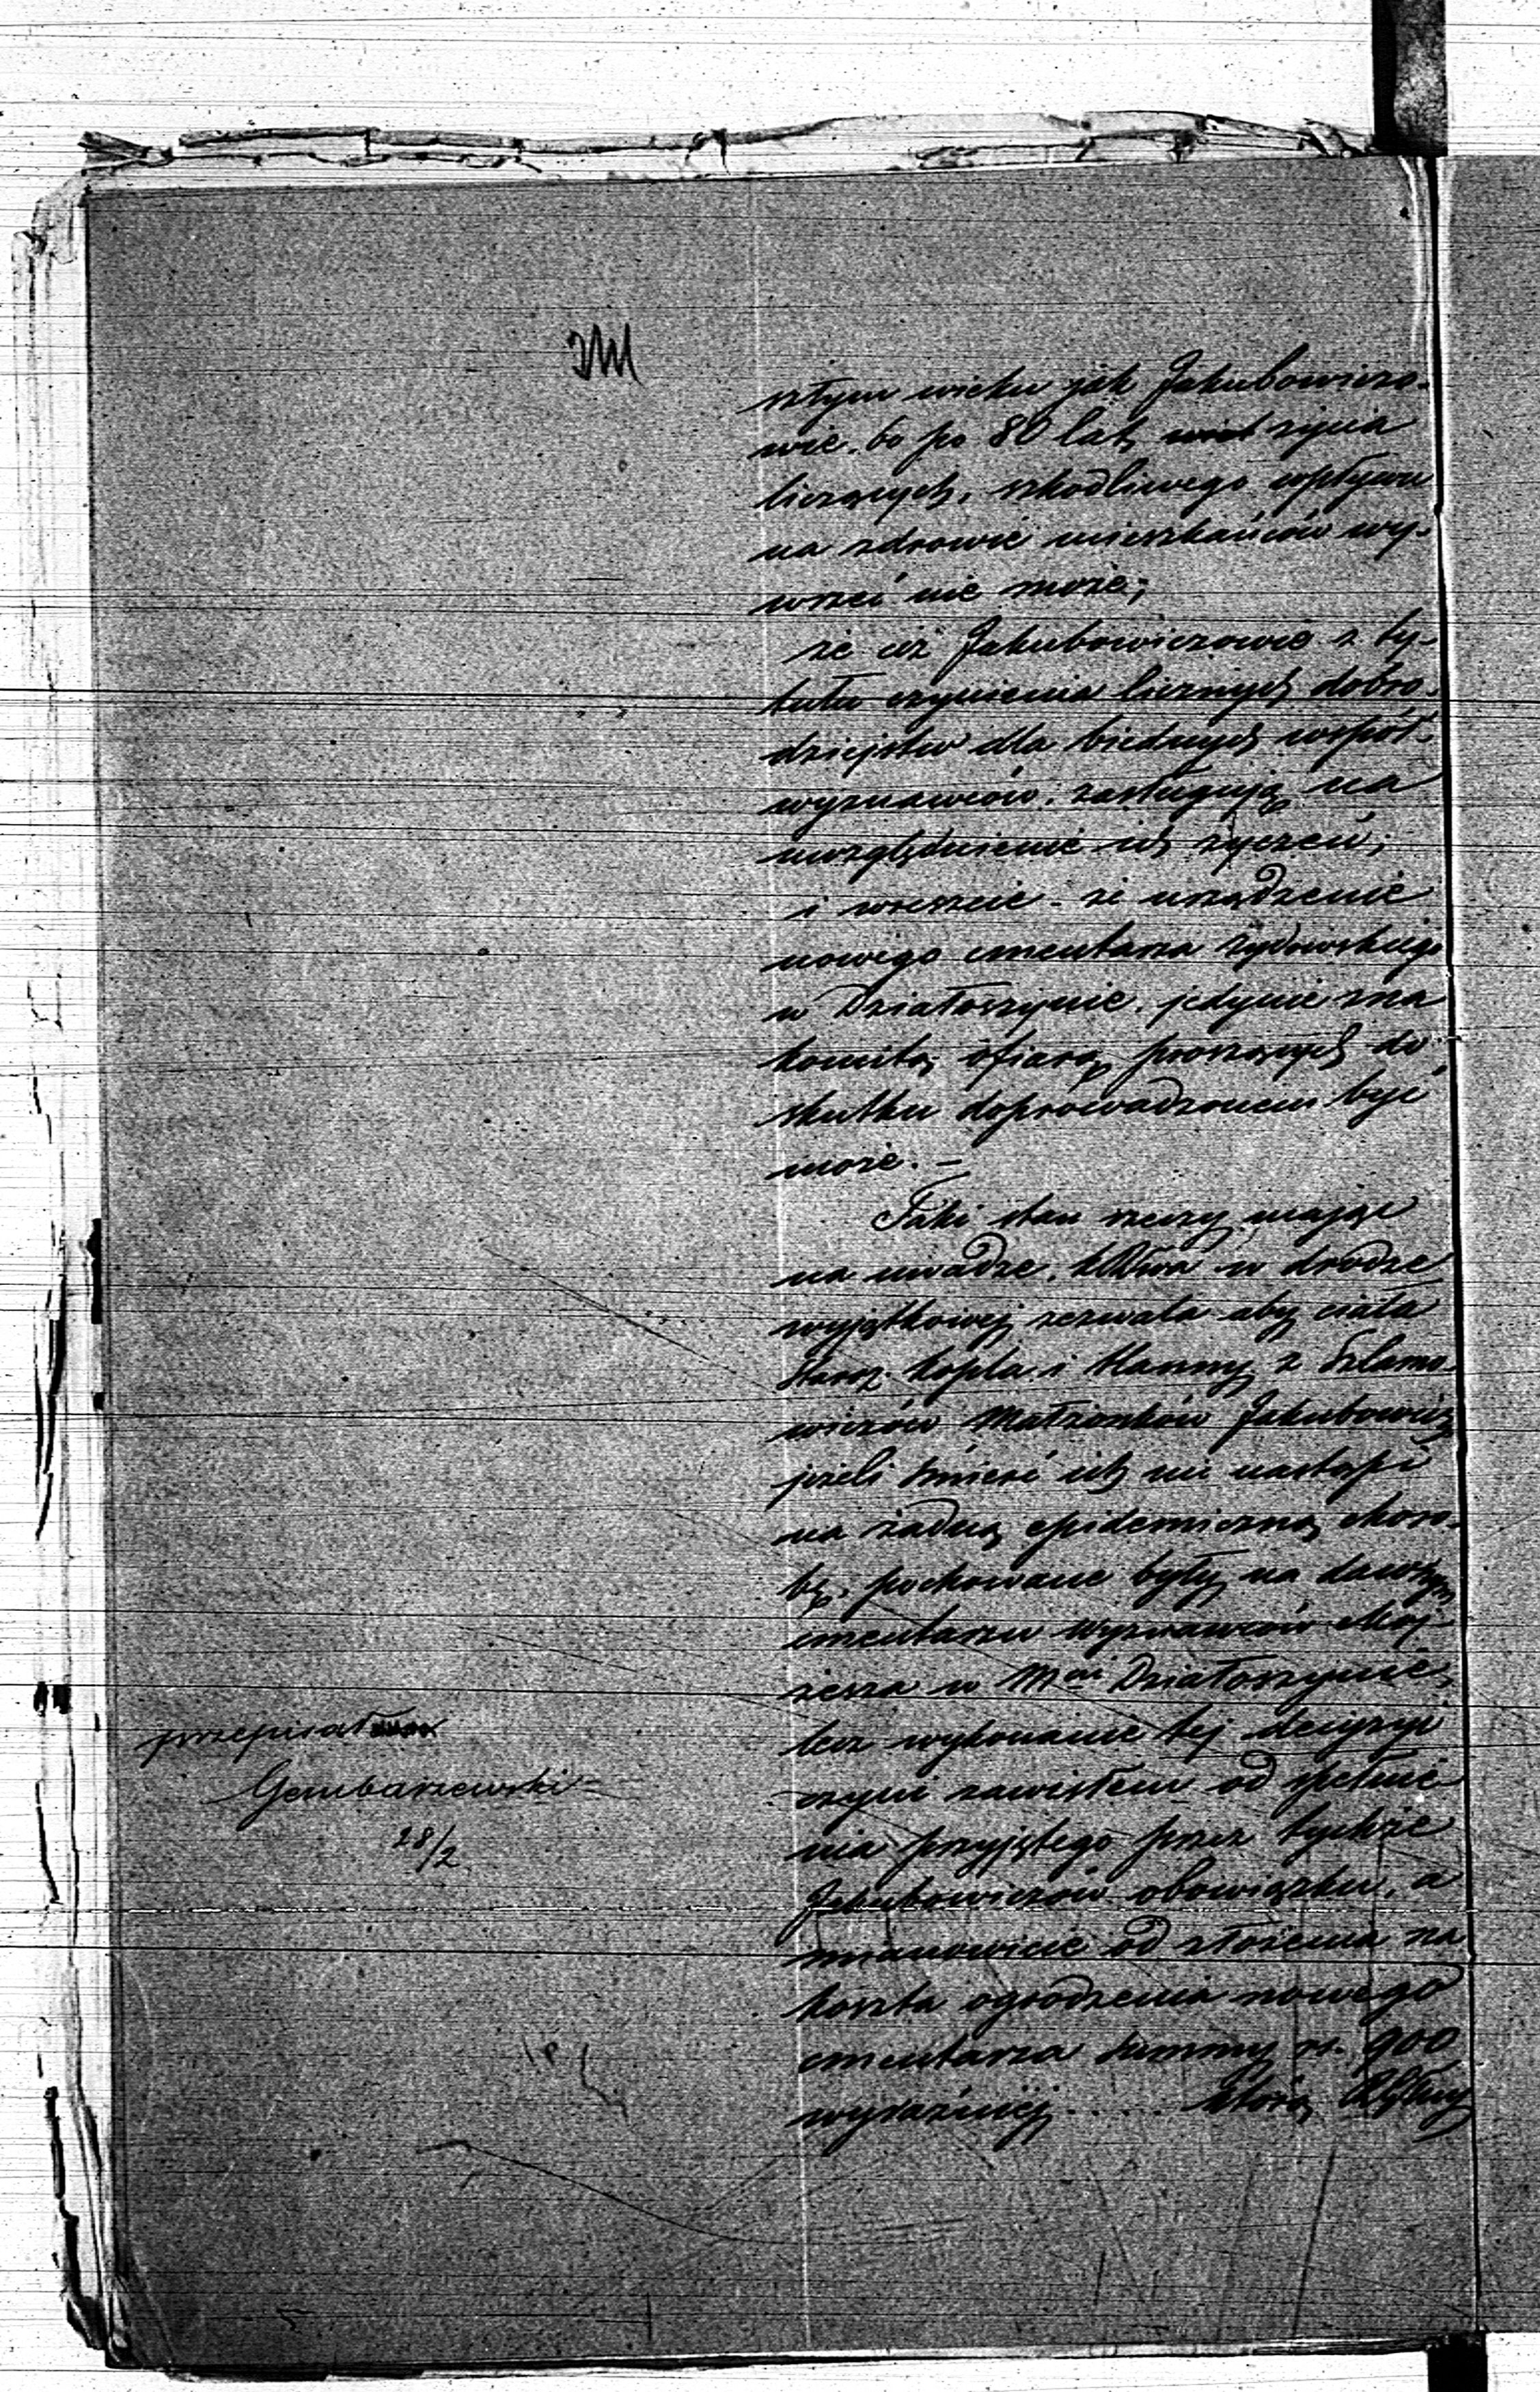 szłym wieku jak Jakubowiczo-
wie. bo po 80 lat życia
liczących, szkodliwego wpływu
na zdrowie mieszkańców wy-
wrzeć nie może;
że ciż Jakubowiczowie z ty-
tułu czynienia licznych dobro-
dziejstw dla biednych współ-
wyznawców, zasługują na
uwzględnienie ich życzeń;
i wreszcie - że urządzenie
nowego cmentarza żydowskiego
w Działoszynie, jedynie zna
komitą ofiarą proszących do
skutku doprowadzonem być
może. —
Taki stan rzeczy mając
na uwadze, w drodze
wyjątkowej zezwala aby ciała
Staroz. Kopla i Hanny z Szlamo-
wiczów Małżonków Jakubowicz
jeżeli śmierć ich nie nastąpi
na żadną epidemiczną choro-
bę, pochowane były na dawnym
cmentarzu wyznawców Moj-
żesza w Mci Działoszynie,
lecz wykonanie tej decyzyi
czyni zawisłem od spełnie
nia przyjętego przez tychże
Jakubowiczów obowiązku, a
mianowicie od złożenia na
koszta ogrodzenia nowego
cmentarza summy rs. 900
wyraźniej .... którą
przepisał
Gembarzewski
28/2